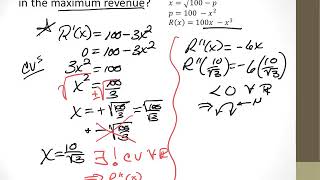 in the maximum revenue?
x = √100 − p
p = 100 − x²
R(x) = 100x − x³
R'(x) = 100 - 3x²
0 = 100 - 3x²
CV's
3x² = 100
√x² = √100/3
x = + √100/3 = √100/√3
+ - √100/3
x = 10/√3
∃! CV ∀ R
⇒ R"(x)
R"(x) = -6x
R"(10/√3) = -6(10/√3)
< 0 ∀ R
⇒